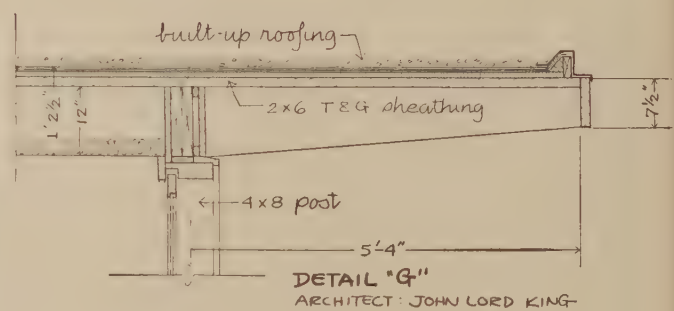 built-up roofing
2x6 T&G sheathing
1'2½"
12"
7½"
4x8 post
5'4"
DETAIL "G"
ARCHITECT: JOHN LORD KING